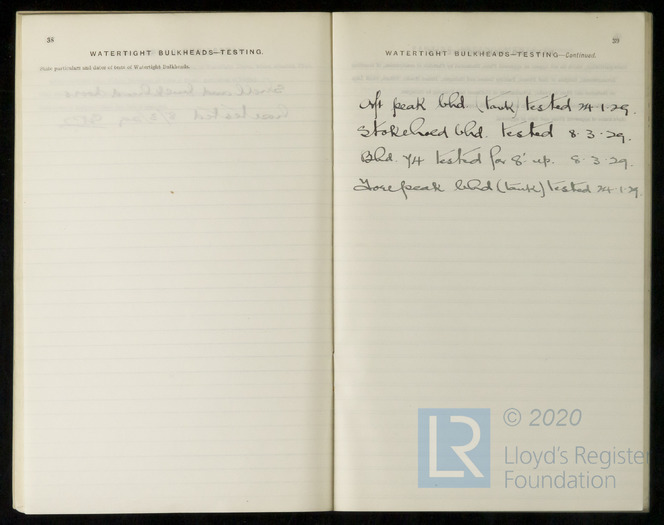 38
WATERTIGHT BULKHEADS—TESTING.
State particulars and dates of tests of Watertight Bulkheads.
39
WATERTIGHT BULKHEADS—TESTING—Continued.
Aft peak bhd. (tank) tested 24.1.29.
Stokehold bhd. tested 8.3.29.
Bhd. 74 tested for 8' up. 8.3.29.
Fore peak bhd (tank) tested 24.1.29.
LR
© 2020
Lloyd's Register
Foundation